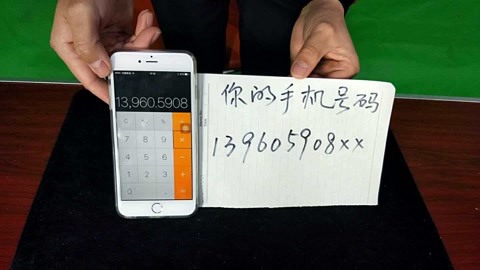 13,960.5908
7 8 9 ×
4 5 6 −
1 2 3 +
0 . =
你的手机号码
139605908xx